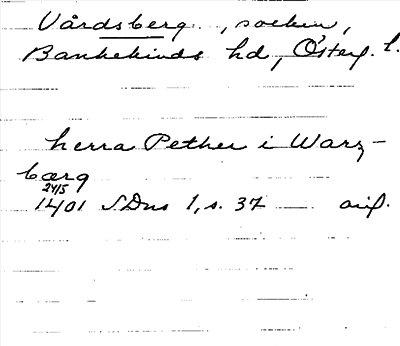 Vårdsberg, socken,
Bankekinds hd, Österg. l.
herra Pether i Warz-
bærg
24/5
1401 SDns 1, s. 37 — avs.